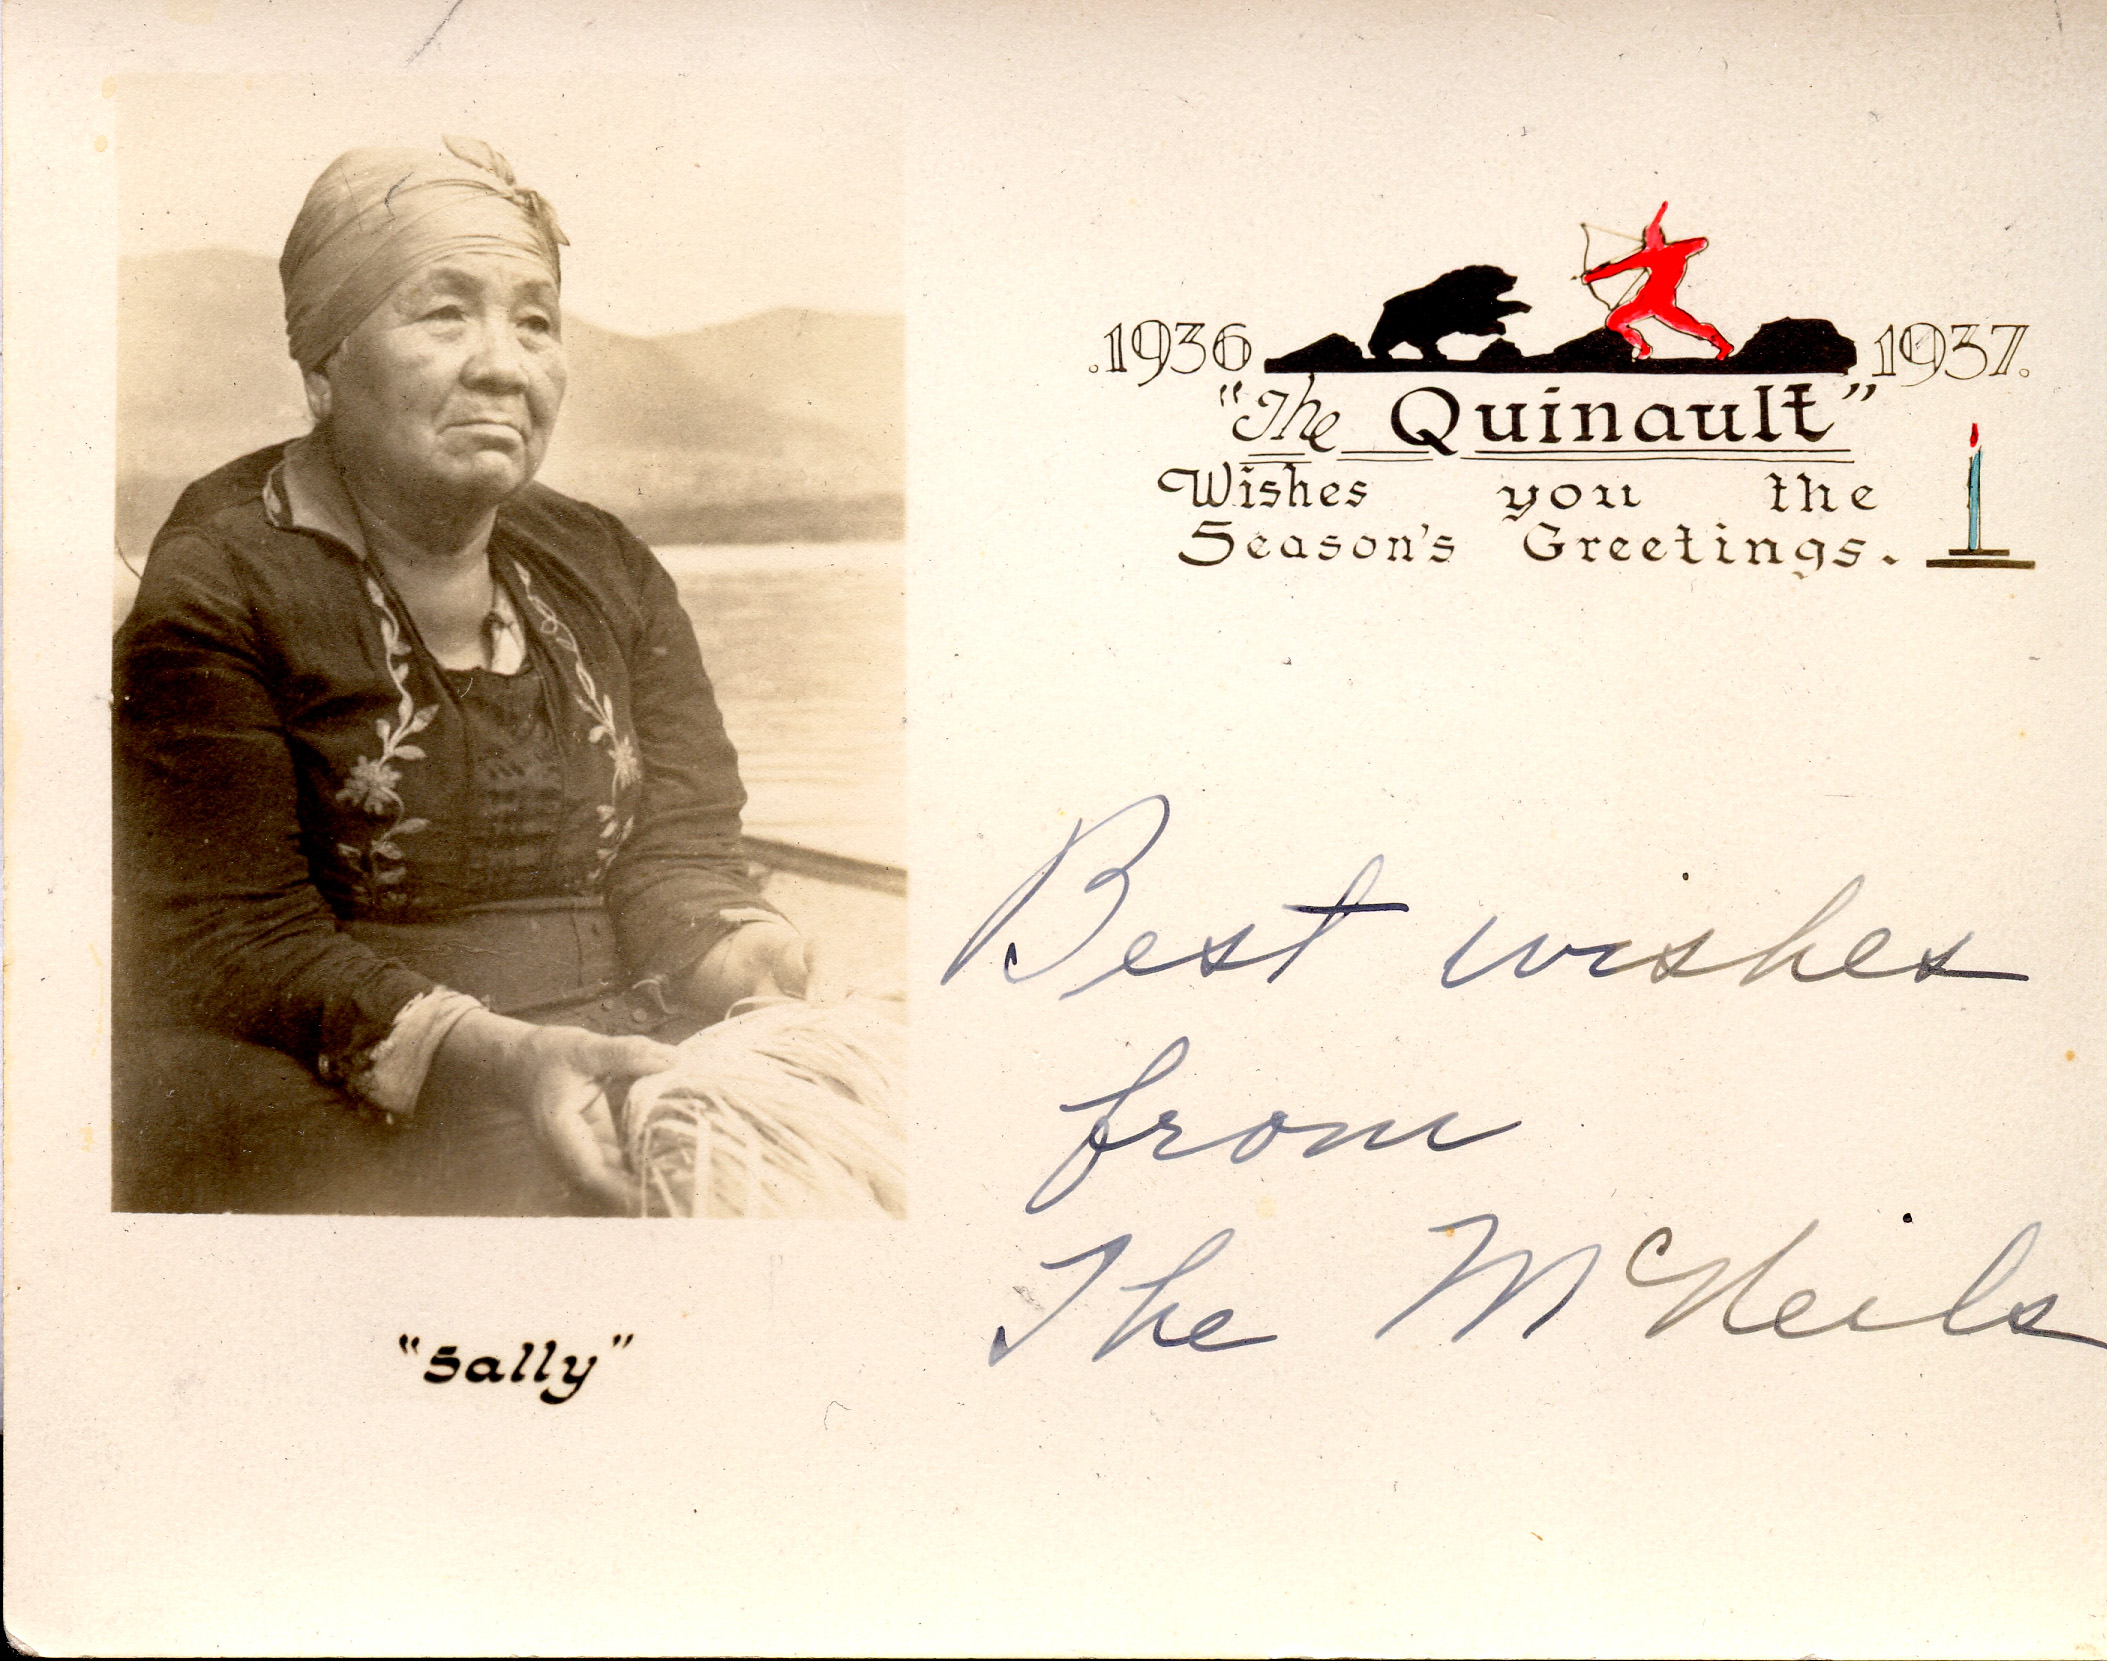 .1936 1937.
"The Quinault"
Wishes you the
Season's Greetings.
Best wishes
from
The McNeils
"Sally"